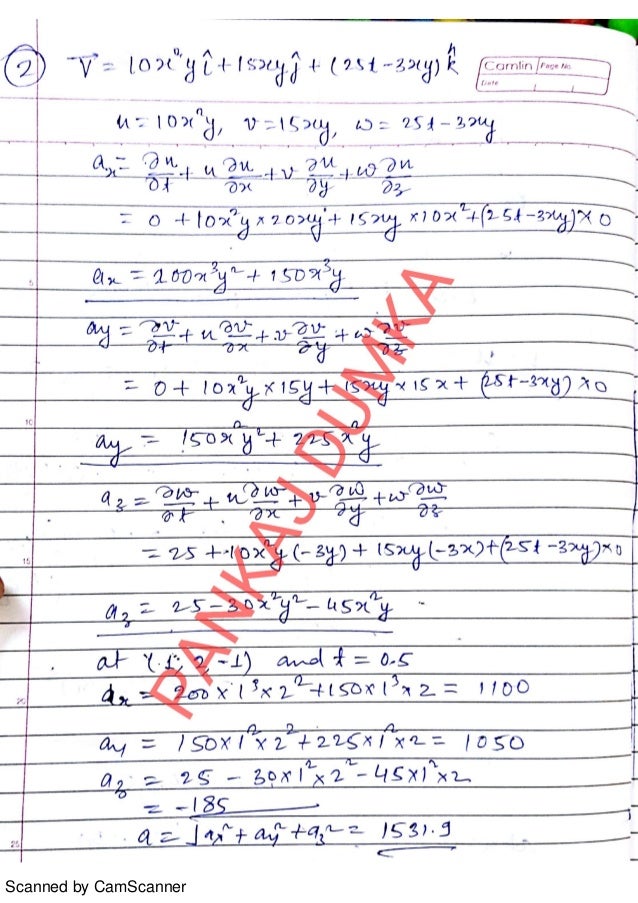 ② V̄ = 10x²yî + 15xyĵ + (25t - 3xy) k̂
Camlin Page No.
Date / /
u = 10x²y, v = 15xy, w = 25t - 3xy
ax = ∂u/∂t + u ∂u/∂x + v ∂u/∂y + w ∂u/∂z
= 0 + 10x²y × 20xy + 15xy × 10x² + (25t - 3xy) × 0
ax = 200x³y² + 150x³y
ay = ∂v/∂t + u ∂v/∂x + v ∂v/∂y + w ∂v/∂z
= 0 + 10x²y × 15y + 15xy × 15x + (25t - 3xy) × 0
ay = 150x²y² + 225x²y
az = ∂w/∂t + u ∂w/∂x + v ∂w/∂y + w ∂w/∂z
= 25 + 10x²y (-3y) + 15xy (-3x) + (25t - 3xy) × 0
az = 25 - 30x²y² - 45x²y
at (1, 2, -1) and t = 0.5
ax = 200 × 1³ × 2² + 150 × 1³ × 2 = 1100
ay = 150 × 1² × 2² + 225 × 1² × 2 = 1050
az = 25 - 30 × 1² × 2² - 45 × 1² × 2
= -185
a = √ax² + ay² + az² = 1531.9
PANKAJ DUMKA
5
10
15
20
25
Scanned by CamScanner